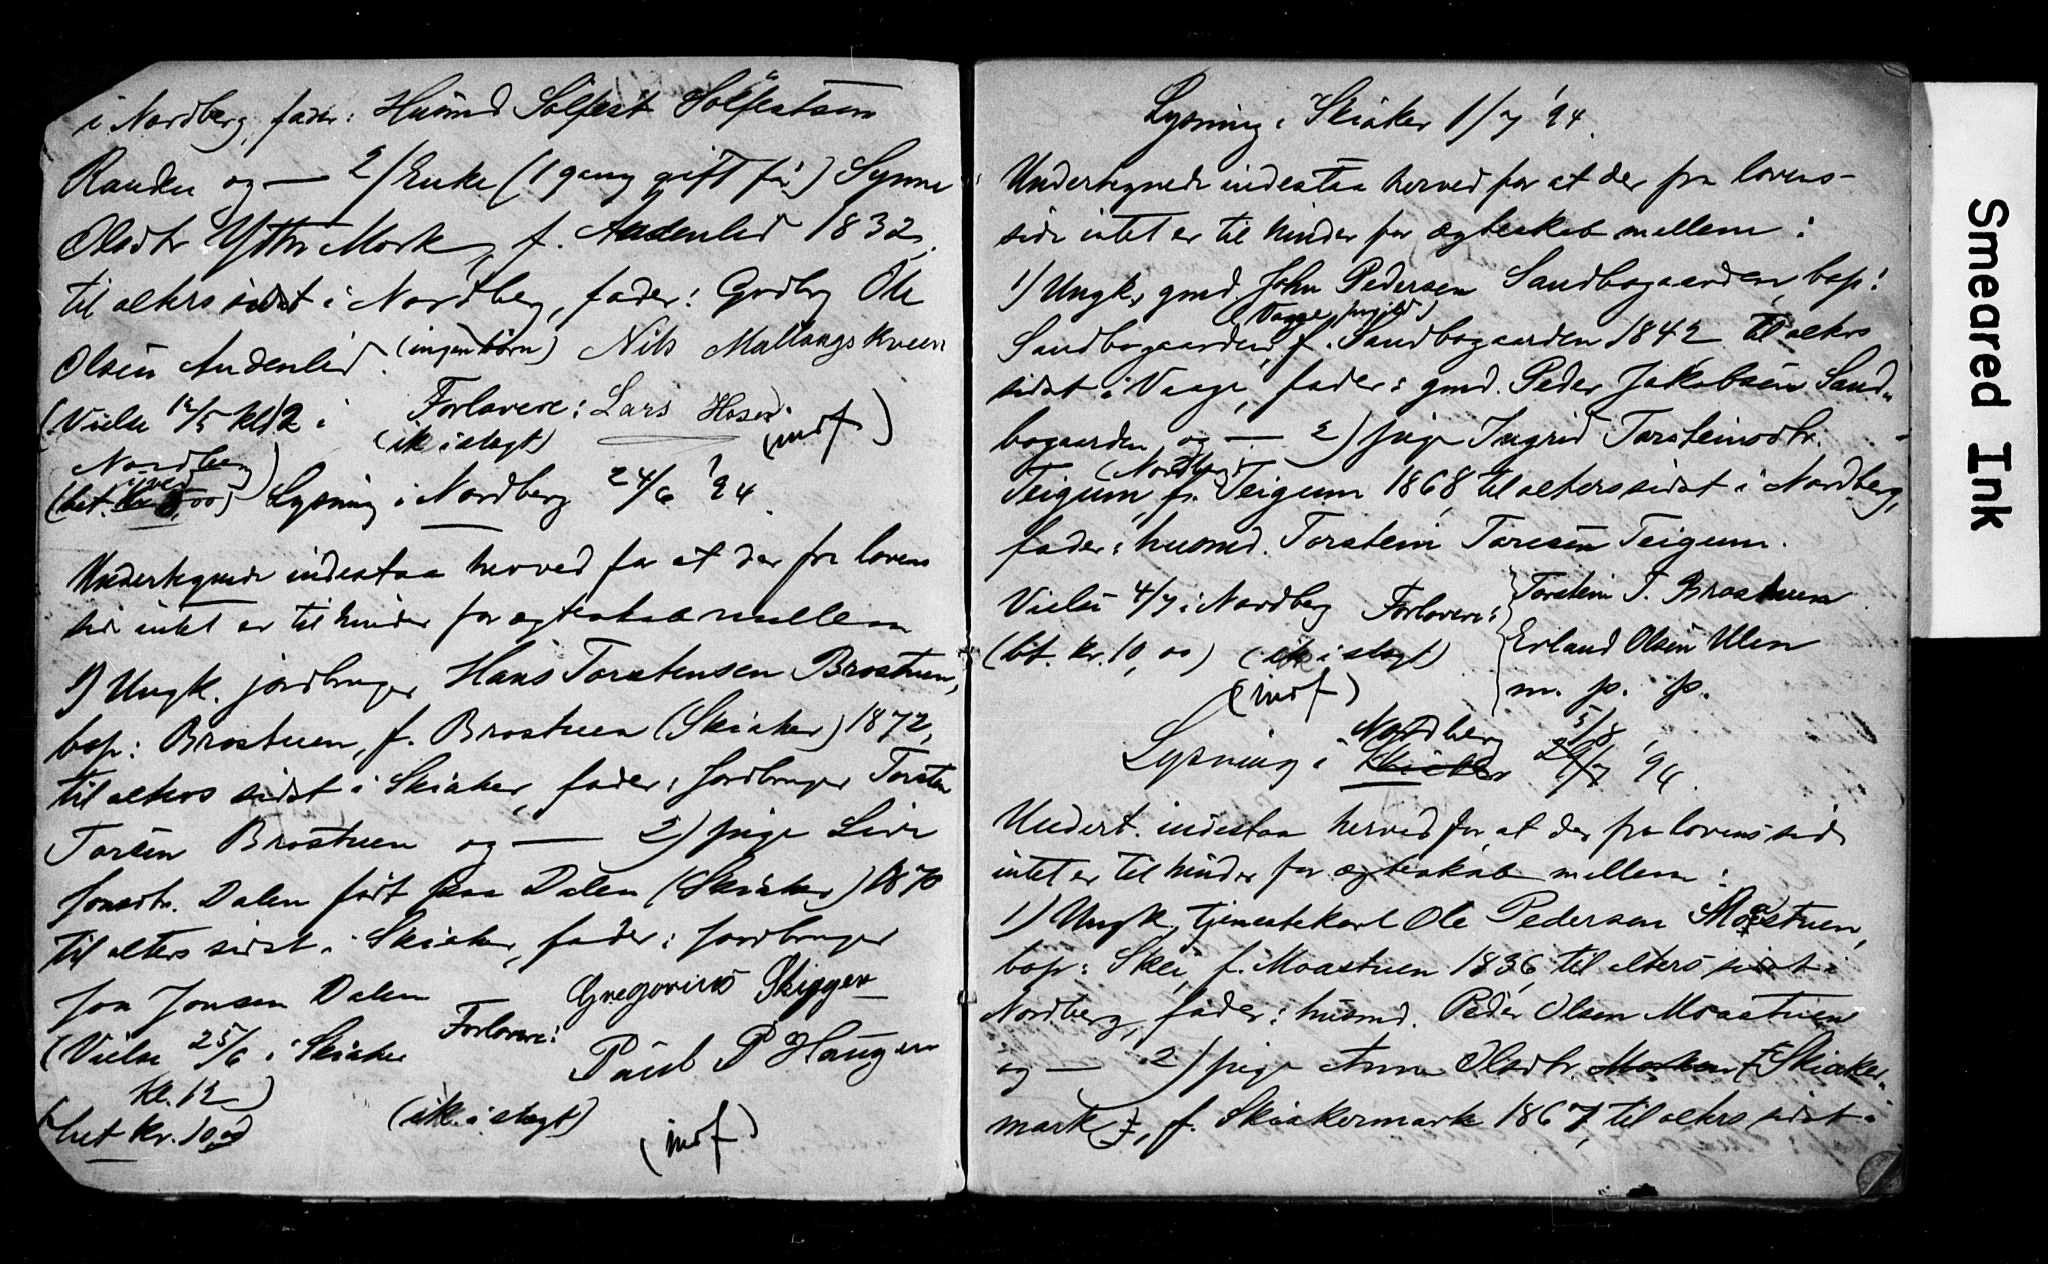 i Nordberg, fader: Husmd Solfest Solfestsøn
Randen og — 2) Enke (1 gang gift før) Synne
Olsdtr Ytter Mork, f. Andenlid 1832,
til alters sidst i Nordberg, fader: Gbdbr Ole
Olsen Andenlid. (ingen børn) Nils Mallangskveen
(Vielse 12/5 kl. 12 i Forlovere: Lars Hosen
Nordberg) (ik i slegt) (indf)
(bet. kr. ,00) Lysning i Nordberg 24/6 '94.
Undertegnede indestaa herved for at der fra lovens
side intet er til hinder for ægteskab mellem
1) Ungk. jordbruger Hans Torstensen Brostuen,
bop: Brostuen, f. Brostuen (Skiaker) 1872,
til alters sidst i Skiaker, fader: Jordbruger Torsten
Toresen Brostuen og — 2) pige Live
Jonsdtr. Dalen født paa Dalen (Skiaker) 1870
til alters sidst i Skiaker, fader: Jordbruger
Jon Jonsen Dalen Gregorius Skigger
(Vielse 25/6 i Skiaker Forlovere: Paul P Haugen
kl. 12)
(bet kr. 10,00) (ik. i slegt) (indf)
Lysning i Skiaker 1/7 '94.
Undertegnede indestaa herved for at der fra lovens-
side intet er til hinder for ægteskab mellem:
1) Ungk., gmd. John Pedersen Sandbogaarden, bop:
(Vaage prgjeld)
Sandbogaarden, f. Sandbogaarden 1842 til alters
sidst i Vaage, fader: gmd. Peder Jakobsen Sand-
bogaarden og — 2) pige Ingrid Torsteinsdtr.
(Nordberg)
Teigum, f. Teigum 1868, til alters sidst i Nordberg,
fader: husmd. Torstein Toresen Teigum.
Vielse 4/7 i Nordberg Forlovere: Torstein T. Brostuen
(bet. kr. 10,00) (ik i slegt) Erland Olsen Ulen
(indf) m. p. p.
Nordberg 5/8
Lysning i Skiaker 29/7 '94.
Undert. indestaa herved for at der fra lovens side
intet er til hinder for ægteskab mellem:
1) Ungk., tjenestekarl Ole Pedersen Moastuen,
bop: Skei, f. Moastuen 1836, til alters sidst i
Nordberg, fader: husmd. Peder Olsen Moastuen
og — 2) pige Anne Olsdtr. Morken (Skiaker-
mark), f. Skiakermark 1867, til alters sidst i
Smeared Ink